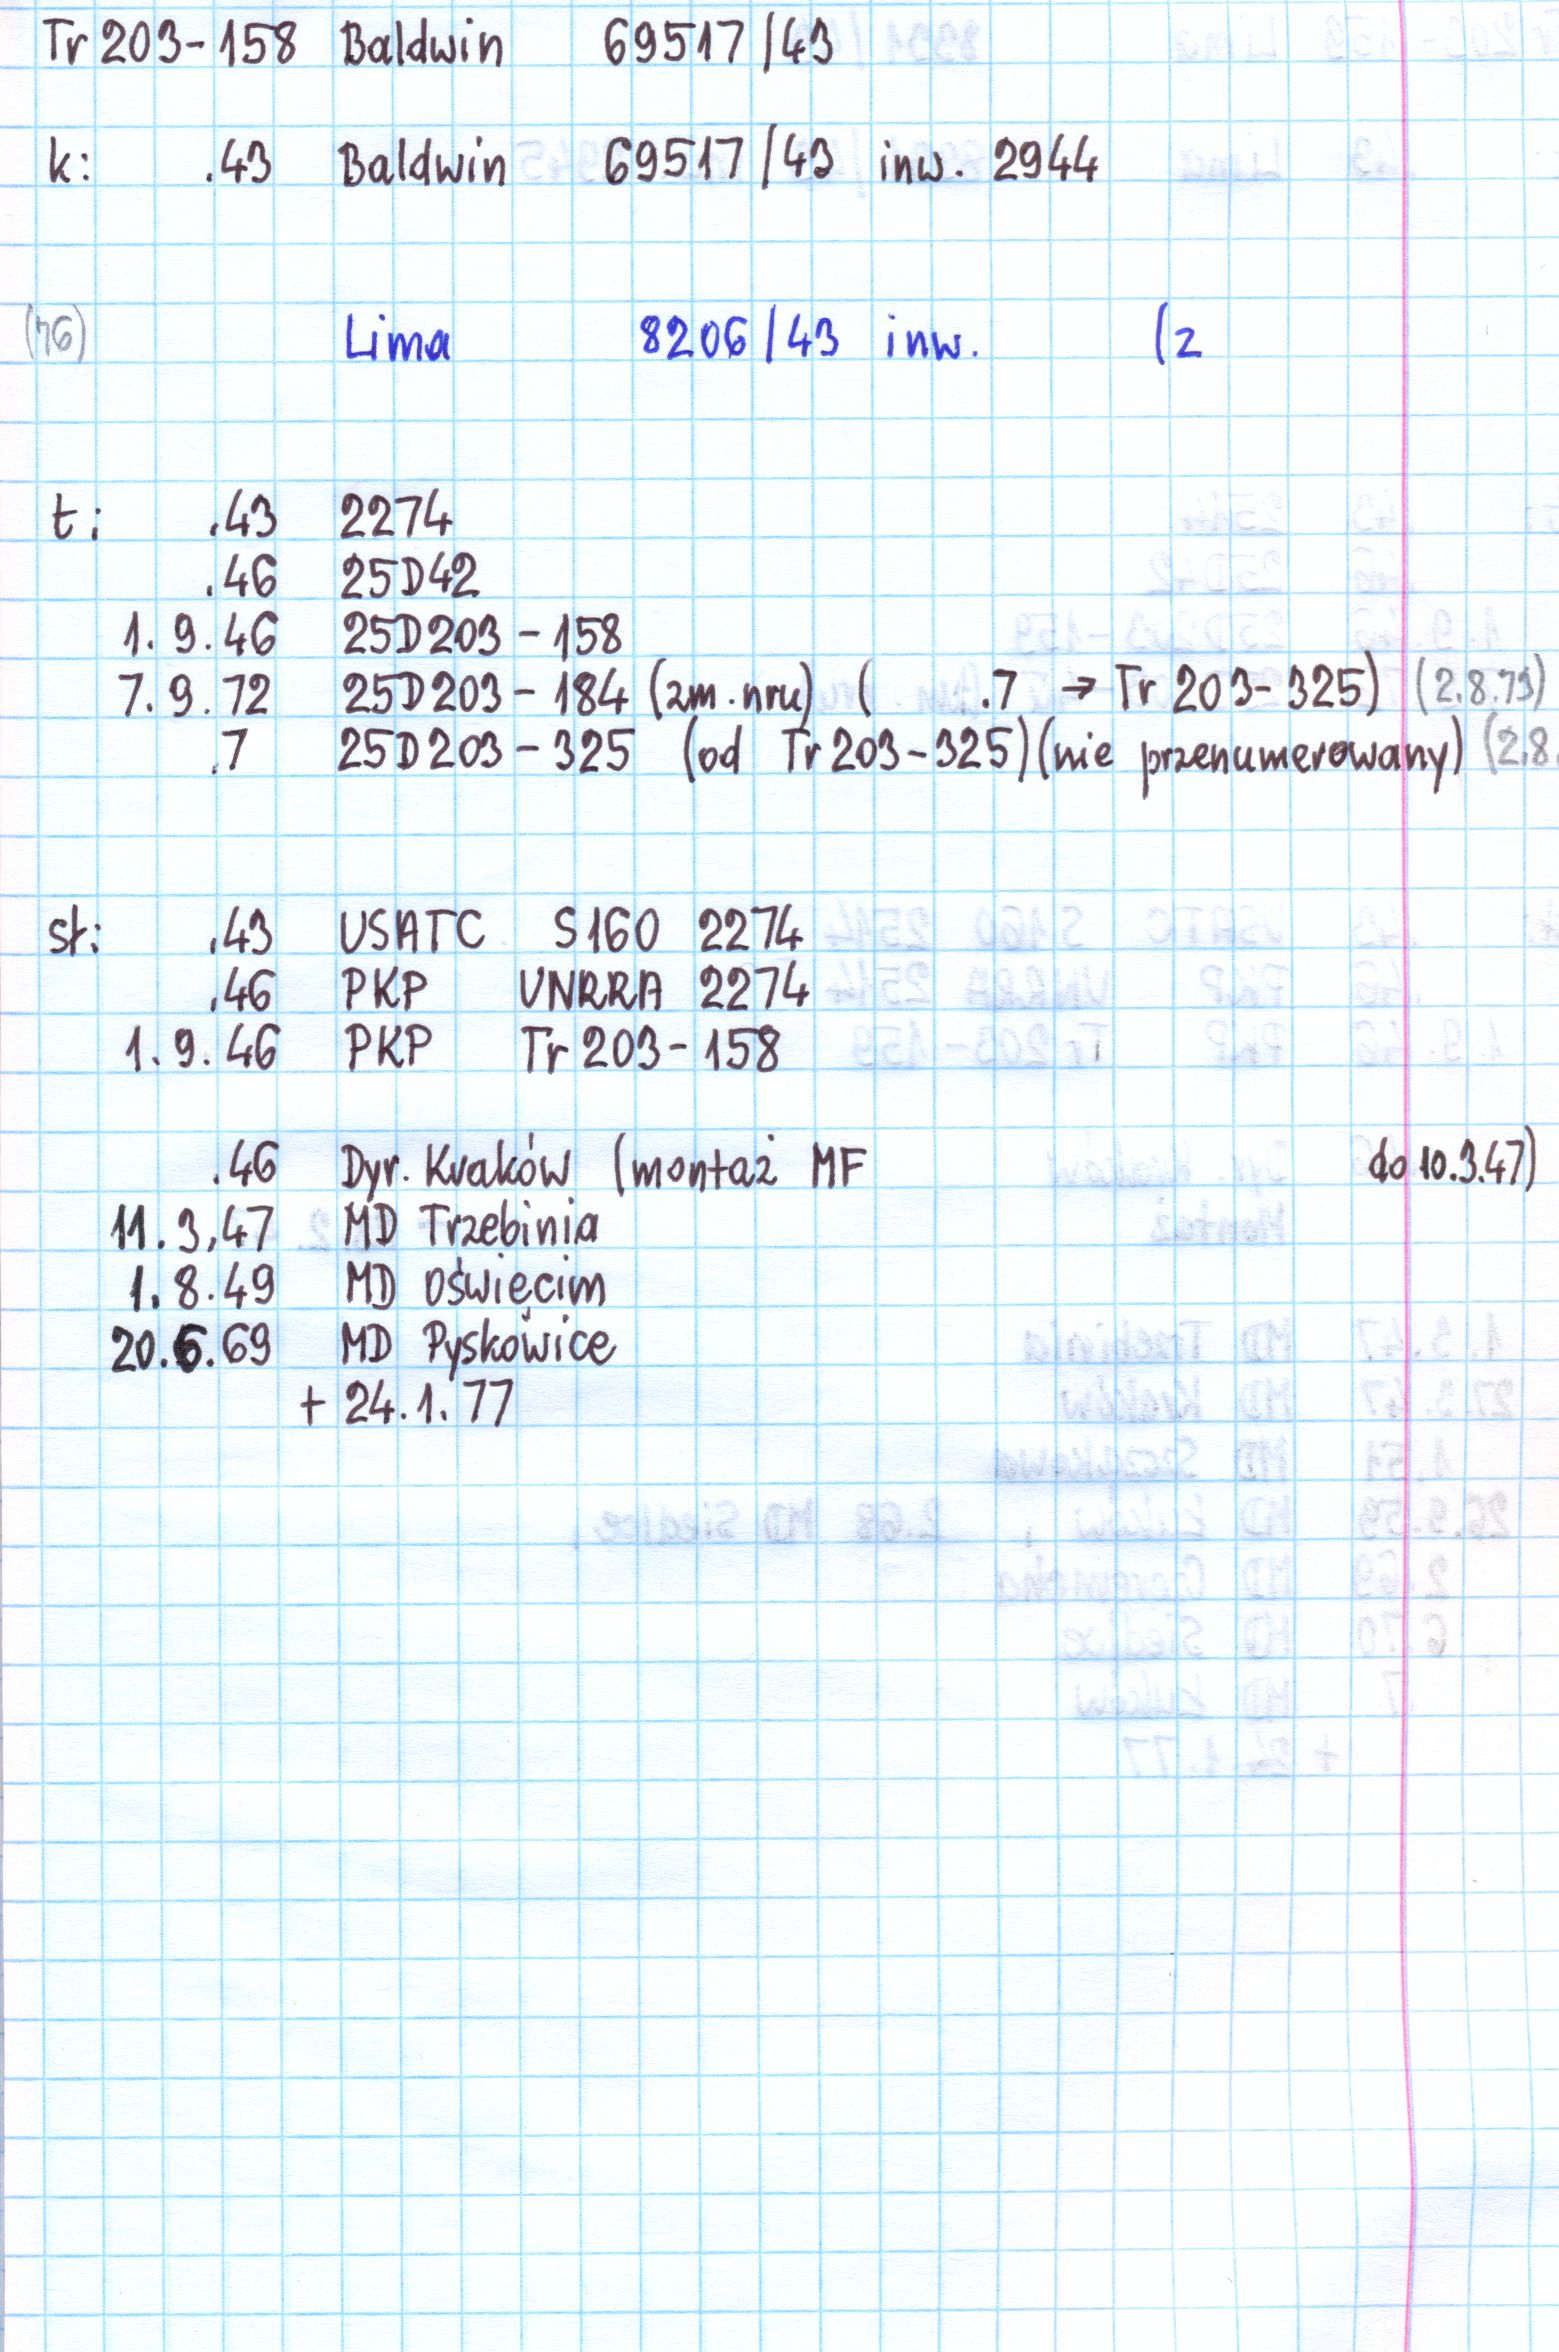 Tr 203-158 Baldwin 69517/43
k: .43 Baldwin 69517/43 inw. 2944
(76) Lima 8206/43 inw. (z
t: .43 2274
.46 25D42
1.9.46 25D203-158
7.9.72 25D203-184 (zm.nru) ( .7 → Tr 203-325) (2.8.73)
.7 25D203-325 (od Tr 203-325) (nie przenumerowany) (2.8.
st: .43 USATC S160 2274
.46 PKP UNRRA 2274
1.9.46 PKP Tr 203-158
.46 Dyr. Kraków (montaż MF do 10.3.47)
11.3.47 MD Trzebinia
1.8.49 MD Oświęcim
20.6.69 MD Pyskowice
+ 24.1.77